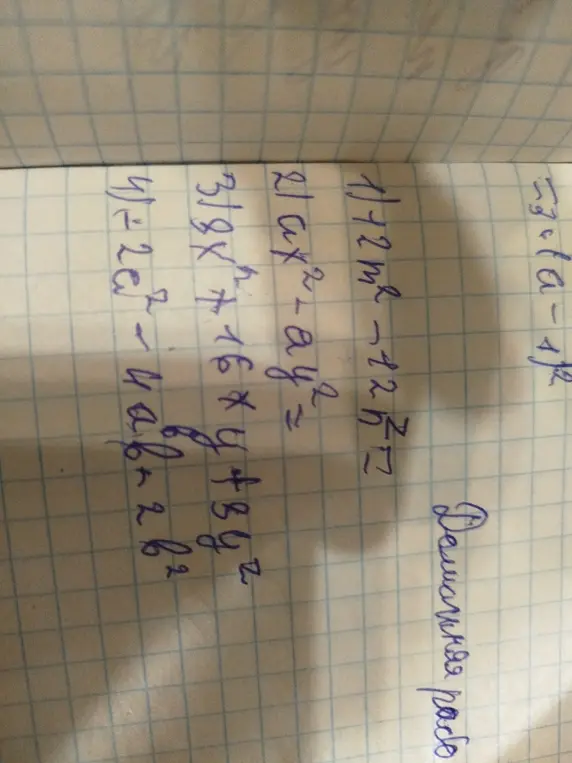 =3·(a-1)²
Домашняя рабо
1) 12m² - 12n² =
2) ax² - ay² =
3) 8x² + 16xy + 8y²
4) -2a² - 4ab - 2b²